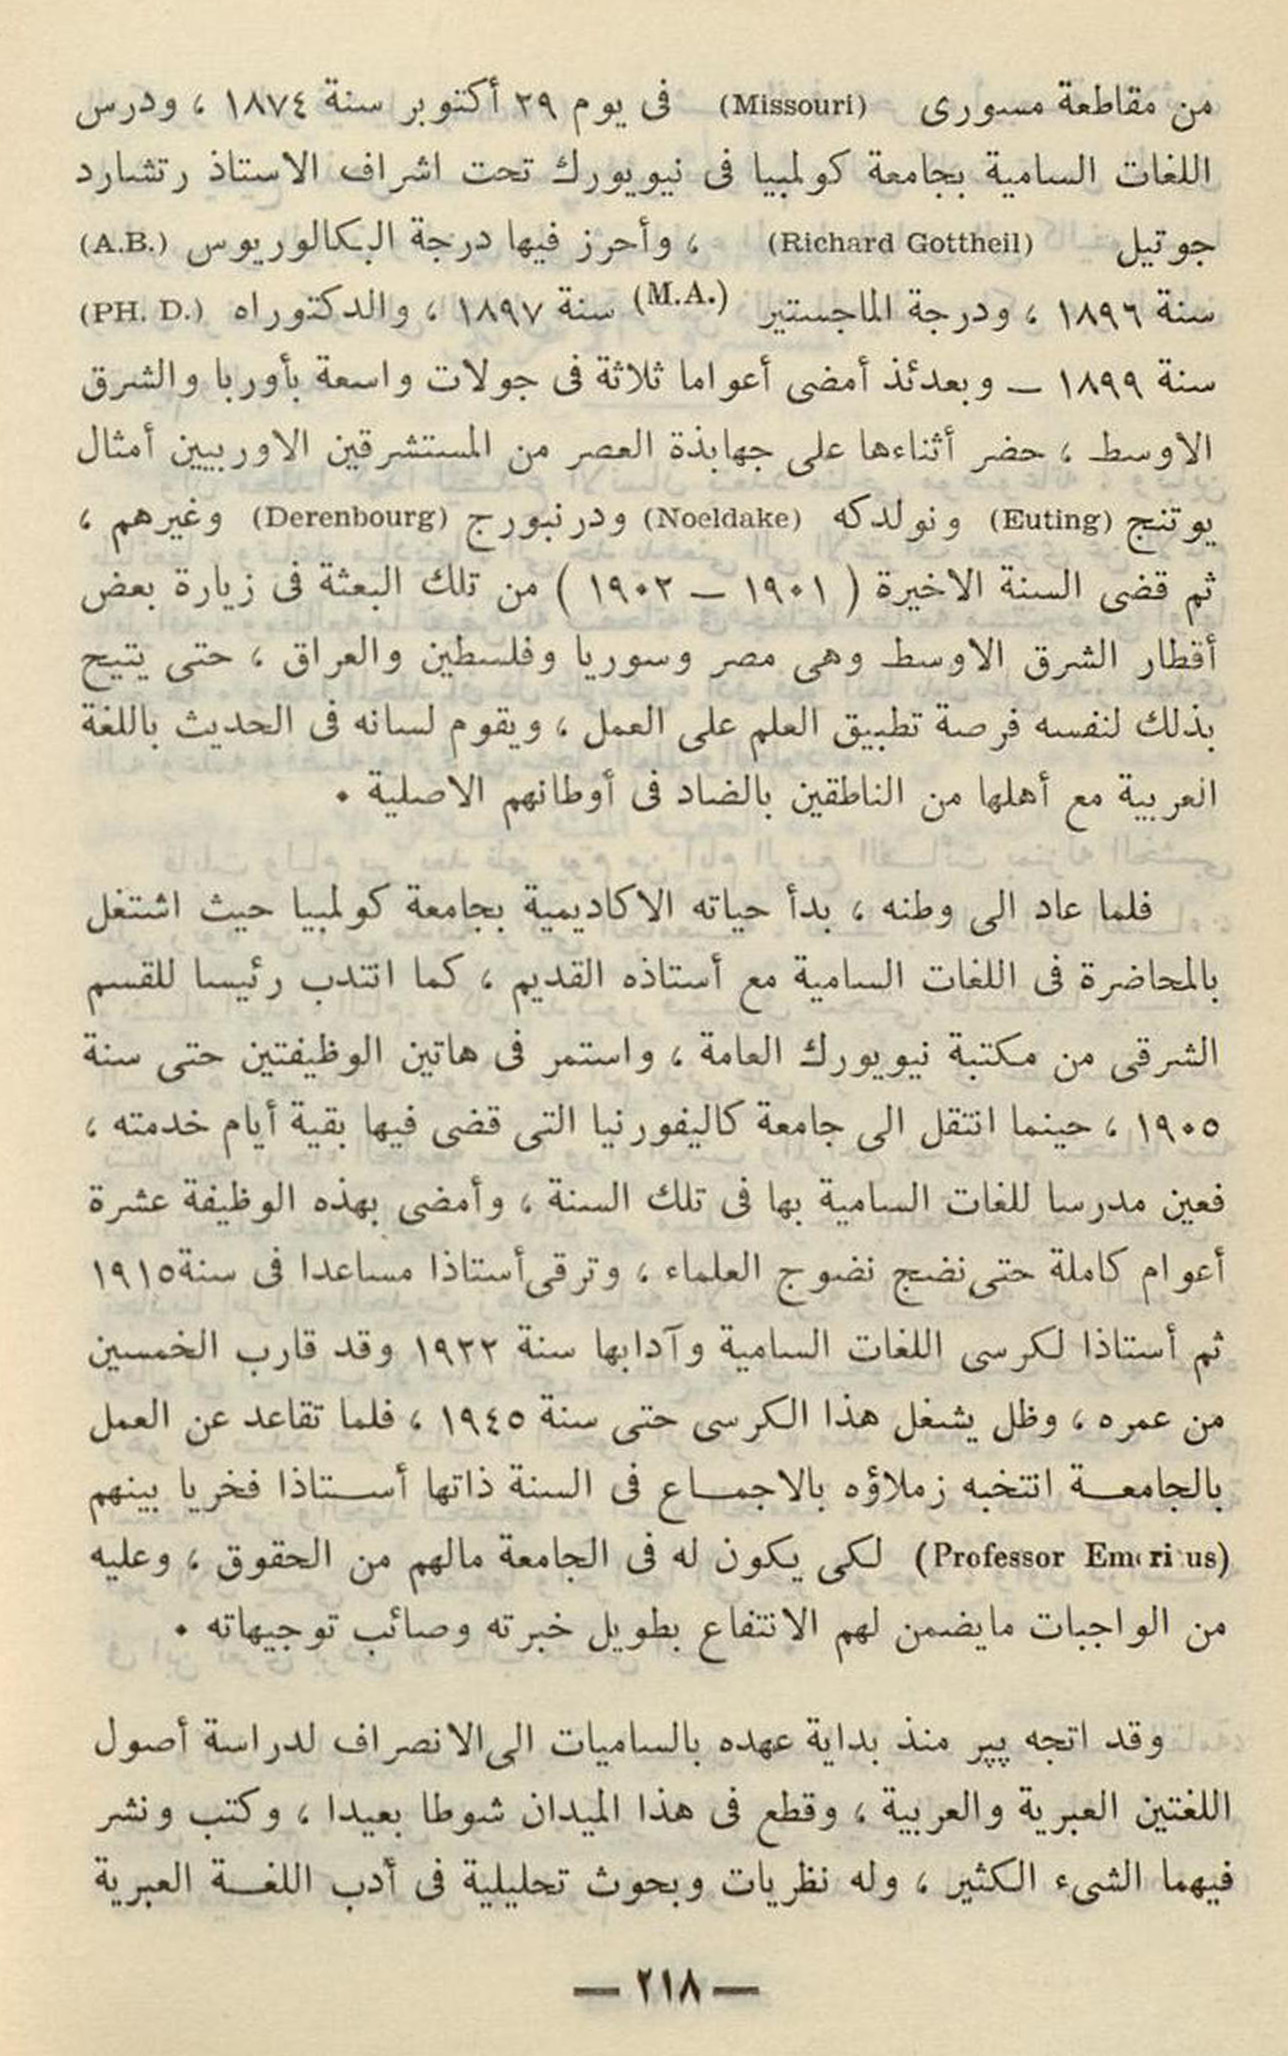 من مقاطعة مسورى (Missouri) فى يوم ٢٩ أكتوبر سنة ١٨٧٤ ، ودرس
اللغات السامية بجامعة كولمبيا فى نيويورك تحت اشراف الاستاذ رتشارد
جوتيل (Richard Gottheil) ، وأحرز فيها درجة البكالوريوس (A.B.)
سنة ١٨٩٦ ، ودرجة الماجستير (M.A.) سنة ١٨٩٧ ، والدكتوراه (PH. D.)
سنة ١٨٩٩ — وبعدئذ أمضى أعواما ثلاثة فى جولات واسعة بأوربا والشرق
الاوسط ، حضر أثناءها على جهابذة العصر من المستشرقين الاوربيين أمثال
يوتنج (Euting) ونولدكه (Noeldake) ودرنبورج (Derenbourg) وغيرهم ،
ثم قضى السنة الاخيرة ( ١٩٠١ — ١٩٠٢ ) من تلك البعثة فى زيارة بعض
أقطار الشرق الاوسط وهى مصر وسوريا وفلسطين والعراق ، حتى يتيح
بذلك لنفسه فرصة تطبيق العلم على العمل ، ويقوم لسانه فى الحديث باللغة
العربية مع أهلها من الناطقين بالضاد فى أوطانهم الاصلية .
فلما عاد الى وطنه ، بدأ حياته الاكاديمية بجامعة كولمبيا حيث اشتغل
بالمحاضرة فى اللغات السامية مع أستاذه القديم ، كما انتدب رئيسا للقسم
الشرقى من مكتبة نيويورك العامة ، واستمر فى هاتين الوظيفتين حتى سنة
١٩٠٥ ، حينما انتقل الى جامعة كاليفورنيا التى قضى فيها بقية أيام خدمته ،
فعين مدرسا للغات السامية بها فى تلك السنة ، وأمضى بهذه الوظيفة عشرة
أعوام كاملة حتى نضج نضوج العلماء ، وترقى أستاذا مساعدا فى سنة ١٩١٥
ثم أستاذا لكرسى اللغات السامية وآدابها سنة ١٩٢٢ وقد قارب الخمسين
من عمره ، وظل يشغل هذا الكرسى حتى سنة ١٩٤٥ ، فلما تقاعد عن العمل
بالجامعـة انتخبه زملاؤه بالاجمـاع فى السنة ذاتها أسـتاذا فخريا بينهم
(Professor Emeritus) لكى يكون له فى الجامعة مالهم من الحقوق ، وعليه
من الواجبات مايضمن لهم الانتفاع بطويل خبرته وصائب توجيهاته .
وقد اتجه پپر منذ بداية عهده بالساميات الى الانصراف لدراسة أصول
اللغتين العبرية والعربية ، وقطع فى هذا الميدان شوطا بعيدا ، وكتب ونشر
فيهما الشىء الكثير ، وله نظريات وبحوث تحليلية فى أدب اللغـة العبرية
— ٢١٨ —